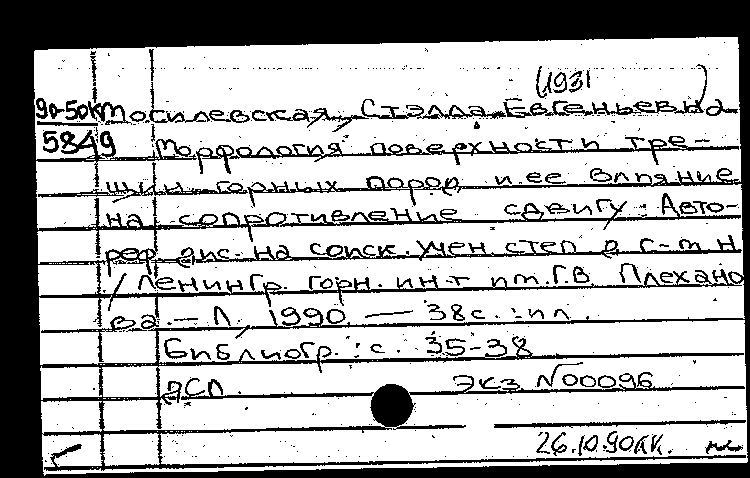 (1931 )
90-50к Мосилевская, Стэлла Евгеньевна
5849 Морфология поверхности тре-
щин горных пород и ее влияние
на сопротивление сдвигу : Авто-
реф дис. на соиск. учен степ д г-м н
/ Ленингр. горн. ин-т им. Г.В. Плехано
ва. — Л, 1990. — 38 с. : ил.
Библиогр. : с. 35-38
ДСП Экз №00096
26.10.90